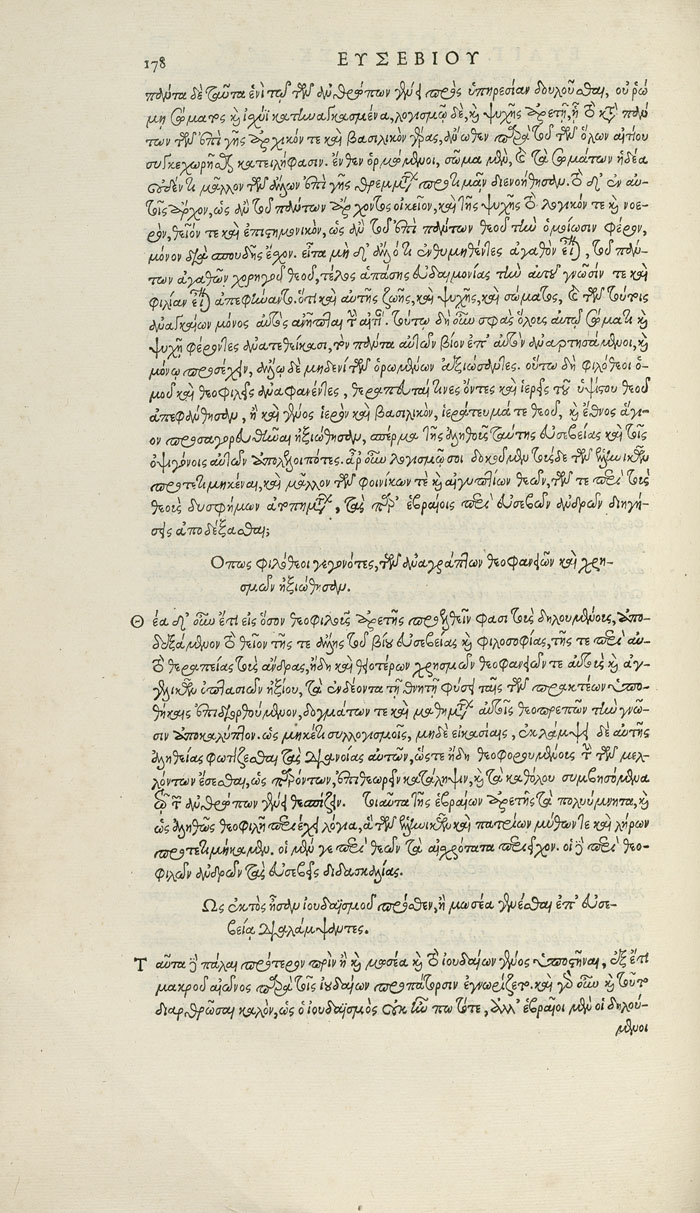 178 ΕΥΣΕΒΙΟΥ
πάντα δὲ ταῦτα ἑνὶ τῷ τῶν ἀνθρώπων γένει πρὸς ὑπηρεσίαν δουλοῦσθαι, οὐ ῥώ-
μῃ σώματος καὶ ἰσχύϊ κατηναγκασμένα, λογισμῷ δὲ, καὶ ψυχῆς ἀρετῇ, ᾗ τὸ κατὰ πάν-
των τῶν ἐπὶ γῆς ἀρχικόν τε καὶ βασιλικὸν γέρας, ἄνωθεν παρὰ τοῦ τῶν ὅλων αἰτίου
συγκεχωρῆσθαι κατειλήφασιν. ἔνθεν ὁρμώμενοι, σῶμα μὲν, καὶ τὰ σωμάτων ἡδέα
οὐδέν τι μᾶλλον τῶν ἄλλων ἐπὶ γῆς θρεμμάτων προτιμᾶν διενοήθησαν. τὸ δ' ἐν αὐ-
τοῖς ἄρχον, ὡς ἂν τοῦ πάντων ἄρχοντος οἰκεῖον, καὶ τῆς ψυχῆς τὸ λογικόν τε καὶ νοε-
ρὸν, θεῖόν τε καὶ ἐπιστημονικὸν, ὡς ἂν τοῦ ἐπὶ πάντων θεοῦ τὴν ὁμοίωσιν φέρον,
μόνον διὰ σπουδῆς ἔχον. εἶτα μὴ δ' ἄλλό τι ἐνθυμηθέντες ἀγαθὸν εἶναι, τοῦ πάν-
των ἀγαθῶν χορηγοῦ θεοῦ, τέλος ἁπάσης εὐδαιμονίας τὴν αὐτοῦ γνῶσίν τε καὶ
φιλίαν εἶναι ἀπεφήναντο. ὅτι καὶ αὐτῆς ζωῆς, καὶ ψυχῆς, καὶ σώματος, καὶ τῶν τούτοις
ἀναγκαίων μόνος αὐτὸς ἀνῆπται τὴν αἰτίαν. τούτῳ δὴ οὖν σφᾶς ὅλοις αὐτῷ σώματι καὶ
ψυχῇ φέροντες ἀνατεθείκασι, τὸν πάντα αὑτῶν βίον ἐπ' αὐτὸν ἀναρτησάμενοι, καὶ
μόνῳ προσέχειν, ἄλλῳ δὲ μηδενὶ τῶν ὁρωμένων ἀξιώσαντες. οὕτω δὴ φιλόθεοι ὁ-
μοῦ καὶ θεοφιλεῖς ἀναφανέντες, θεραπευταί τινες ὄντες καὶ ἱερεῖς τοῦ ὑψίστου θεοῦ
ἀπεφάνθησαν, ἢ καὶ γένος ἱερὸν καὶ βασιλικὸν, ἱεράτευμά τε θεοῦ, καὶ ἔθνος ἅγι-
ον προσαγορευθῆναι ἠξιώθησαν, σπέρμα τῆς ἀληθοῦς ταύτης εὐσεβείας καὶ τοῖς
ὀψιγόνοις αὑτῶν ἀπολελοιπότες. ἆρ' οὖν λογισμῷ σοι δοκοῦμεν τούσδε τῶν ἑλληνικῶν
προτετιμηκέναι, καὶ μᾶλλον τῶν φοινίκων τε καὶ αἰγυπτίων θεῶν, τῶν τε περὶ τοὺς
θεοὺς δυσφήμων ἀτοπημάτων, τὰς παρ' ἑβραίοις περὶ εὐσεβῶν ἀνδρῶν διηγή-
σεις ἀποδέξασθαι;
Οπως φιλόθεοι γεγονότες, τῶν ἀναγράπτων θεοφανειῶν καὶ χρη-
σμῶν ἠξιώθησαν.
Θέα δ' οὖν ἔτι εἰς ὅσον θεοφιλοῦς ἀρετῆς προελθεῖν φασι τοὺς δηλουμένους, ἀπο-
δεξάμενον τὸ θεῖον τῆς τε ἄλλης τοῦ βίου εὐσεβείας καὶ φιλοσοφίας, τῆς τε περὶ αὐ-
τὸ θεραπείας τοὺς ἄνδρας, ἤδη καὶ θειοτέρων χρησμῶν θεοφανειῶν τε αὐτοὺς καὶ ἀγ-
γελικῶν ὀπτασιῶν ἠξίου, τὰ ἐνδέοντα τῇ θνητῇ φύσει ταῖς τῶν πρακτέων ὑπο-
θήκαις ἐπιδιορθούμενον, δογμάτων τε καὶ μαθημάτων αὐτοῖς θεοπρεπῶν τὴν γνῶ-
σιν ἀποκαλύπτον. ὡς μηκέτι συλλογισμοῖς, μηδὲ εἰκασίαις, ἐκλάμψει δὲ αὐτῆς
ἀληθείας φωτίζεσθαι τὰς διανοίας αὐτῶν, ὥστε ἤδη θεοφορουμένους τὴν τῶν μελ-
λόντων ἔσεσθαι, ὡς παρόντων, ἐπιθεωρεῖν κατάληψιν, καὶ τὰ καθόλου συμβησόμενα
τῷ τῶν ἀνθρώπων γένει θεσπίζειν. Τοιαῦτα τῆς ἑβραίων ἀρετῆς τὰ πολυύμνητα, καὶ
ὡς ἀληθῶς θεοφιλῆ περιέχει λόγια, ἃ τῶν ἑλληνικῶν καὶ πατρίων μύθων τε καὶ λήρων
προτετιμήκαμεν. οἱ μέν γε περὶ θεῶν τὰ αἰσχρότατα περιεῖχον. οἱ δὲ περὶ θεο-
φιλῶν ἀνδρῶν τὰς εὐσεβεῖς διδασκαλίας.
Ως ἐκτὸς ἦσαν ἰουδαϊσμοῦ πρόσθεν, ἢ μωσέα γενέσθαι ἐπ' εὐσε-
βείᾳ διαλάμψαντες.
Ταῦτα δὲ πάλαι πρότερον πρὶν ἢ καὶ μωσέα καὶ τὸ ἰουδαίων γένος ὑποστῆναι, ἐξ ἔτι
μακροῦ αἰῶνος παρὰ τοῖς ἰουδαίων προπάτορσιν ἐγνωρίζετο. καὶ γὰρ οὖν καὶ τοῦτο
διαρθρῶσαι καλὸν, ὡς ὁ ἰουδαϊσμὸς οὐκ ἦν πω τότε, ἀλλ' ἑβραῖοι μὲν οἱ δηλού-
μενοι